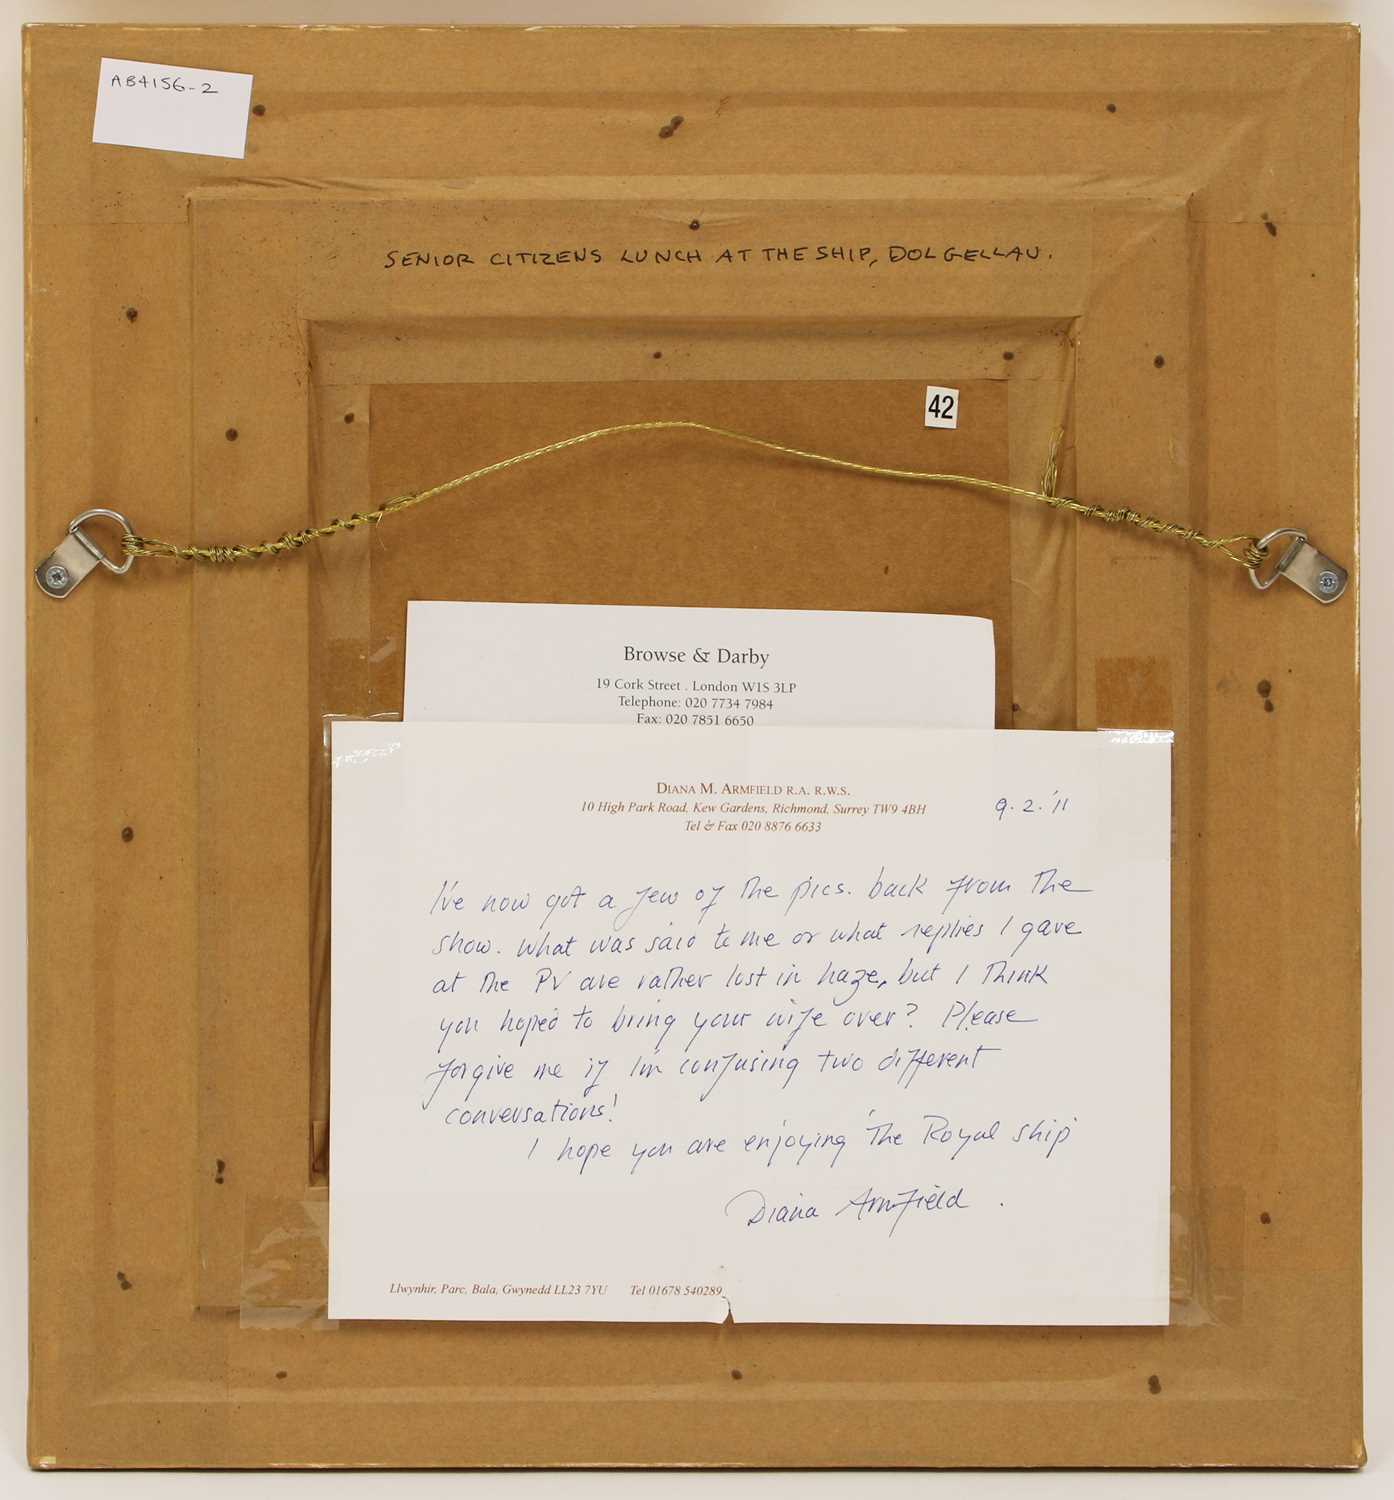 AB4156-2
SENIOR CITIZENS LUNCH AT THE SHIP, DOLGELLAU.
42
Browse & Darby
19 Cork Street . London W1S 3LP
Telephone: 020 7734 7984
Fax: 020 7851 6650
DIANA M. ARMFIELD R.A. R.W.S.
10 High Park Road, Kew Gardens, Richmond, Surrey TW9 4BH
Tel & Fax 020 8876 6633
9.2.'11
I've now got a few of the pics. back from the
show. What was said to me or what replies I gave
at the PV are rather lost in haze, but I think
you hoped to bring your wife over? Please
forgive me if I'm confusing two different
conversations!
I hope you are enjoying 'The Royal Ship'
Diana Armfield .
Llwynhir, Parc, Bala, Gwynedd LL23 7YU Tel 01678 540289